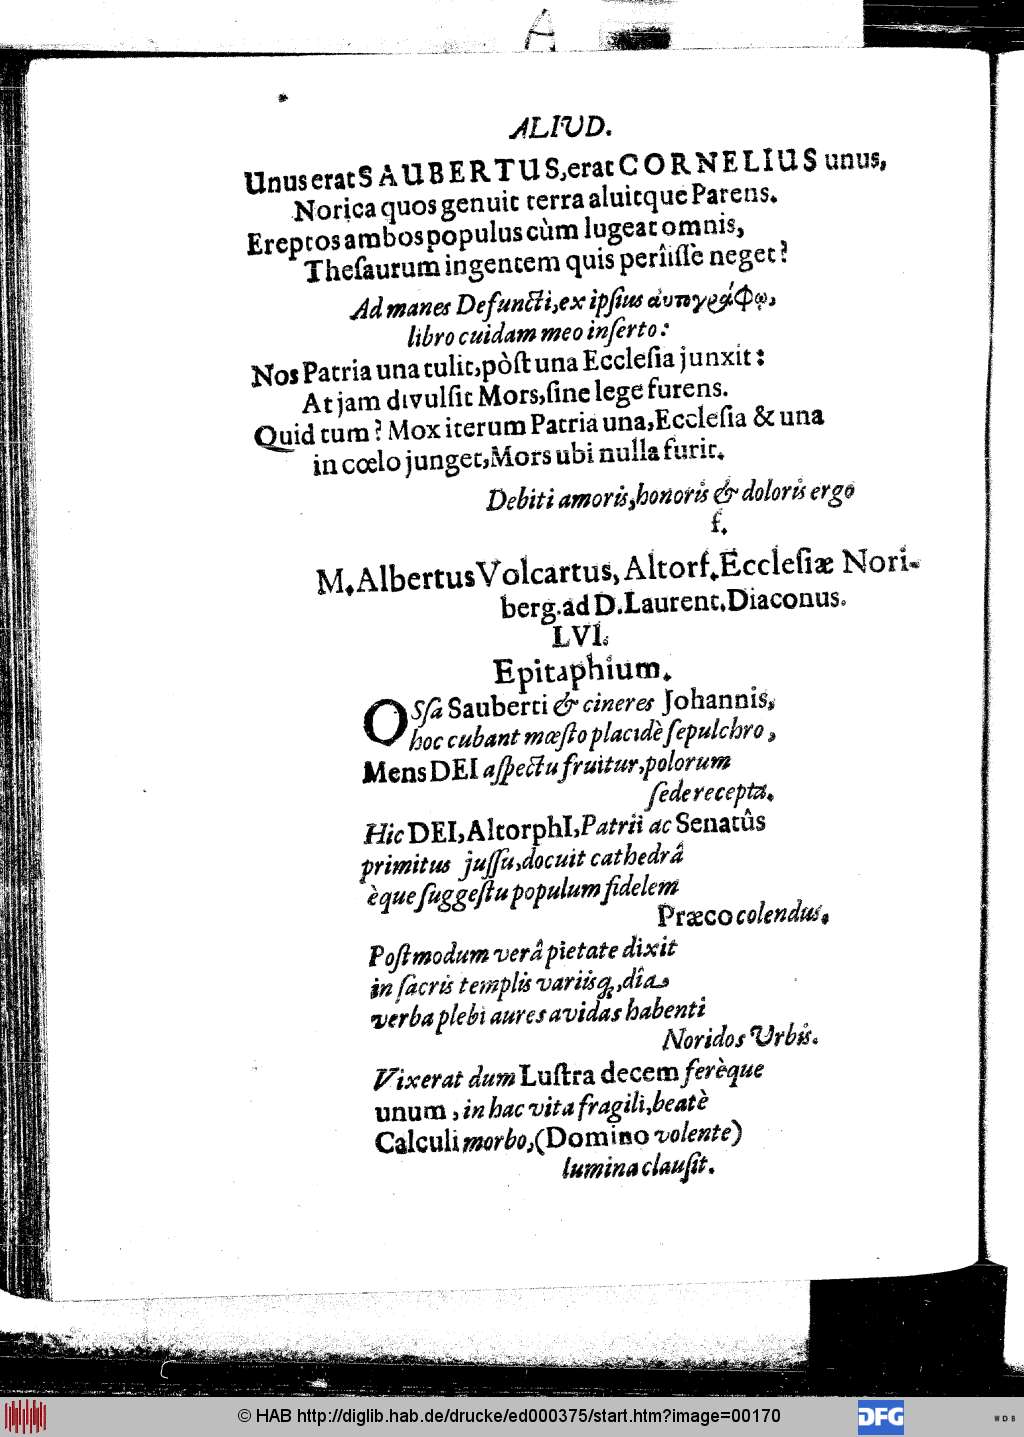 ALIUD.
Unus erat SAUBERTUS, erat CORNELIUS unus,
Norica quos genuit terra aluitque Parens.
Ereptos ambos populus cùm lugeat omnis,
Theſaurum ingentem quis perîiſſè neget?
Ad manes Defuncti, ex ipſius αυτογράφῳ,
libro cuidam meo inſerto:
Nos Patria una tulit, pòſt una Eccleſia junxit:
At jam divulſit Mors, ſine lege furens.
Quid tum? Mox iterum Patria una, Eccleſia & una
in cœlo junget, Mors ubi nulla furit.
Debiti amoris, honoris & doloris ergo
f.
M. Albertus Volcartus, Altorf. Eccleſiæ Nori-
berg. ad D. Laurent. Diaconus.
LVI.
Epitaphium.
OSſa Sauberti & cineres Johannis,
hoc cubant mœſto placidè ſepulchro,
Mens DEI aſpectu fruitur, polorum
ſede recepta.
Hic DEI, AltorphI, Patrii ac Senatûs
primitus juſſu, docuit cathedrâ
èque ſuggeſtu populum fidelem
Præco colendus.
Poſtmodum verâ pietate dixit
in ſacris templis variisq́;, dîa
verba plebi aures avidas habenti
Noridos Urbis.
Vixerat dum Luſtra decem ferèque
unum, in hac vita fragili, beatè
Calculi morbo, (Domino volente)
lumina clauſit.
© HAB http://diglib.hab.de/drucke/ed000375/start.htm?image=00170
DFG
WDB